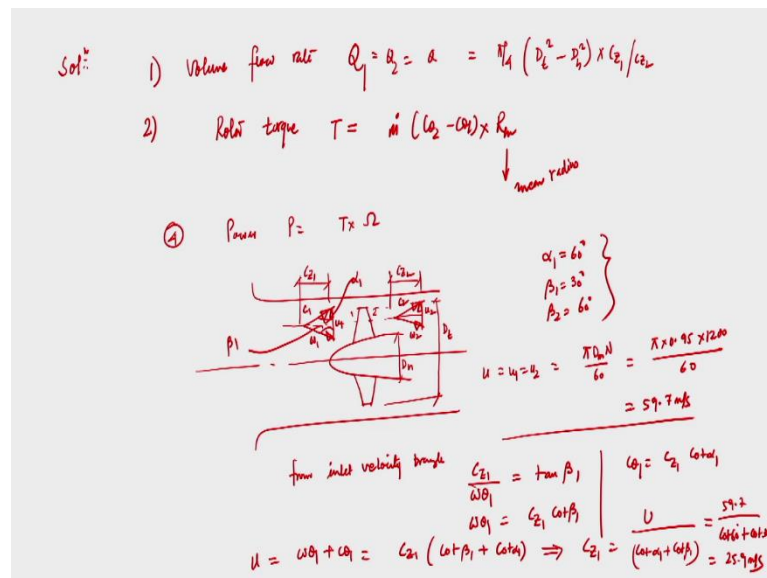 Solⁿ:
1) Volume flow rate Q₁ = Q₂ = Q = π/4 (D_t² - D_h²) × C_z₁/C_z₂
2) Rotor torque T = ṁ (Cθ₂ - Cθ₁) × R_m
mean radius
④ Power P = T × Ω
C_z₁ α₁ C_z₂
α₁ = 60°
β₁ = 30°
β₂ = 60°
C₁ u₁ w₁ C₂ u₂ w₂ 1 2 D_t
β₁ D_h
u = u₁ = u₂ = πD_mN/60 = π × 0.95 × 1200/60
= 59.7 m/s
from inlet velocity triangle C_z₁/wθ₁ = tan β₁ Cθ₁ = C_z₁ cot α₁
wθ₁ = C_z₁ cot β₁
u = wθ₁ + cθ₁ = C_z₁ (cot β₁ + cot α₁) ⇒ C_z₁ = U/(cot α₁ + cot β₁) = 59.7/
= 25.9 m/s